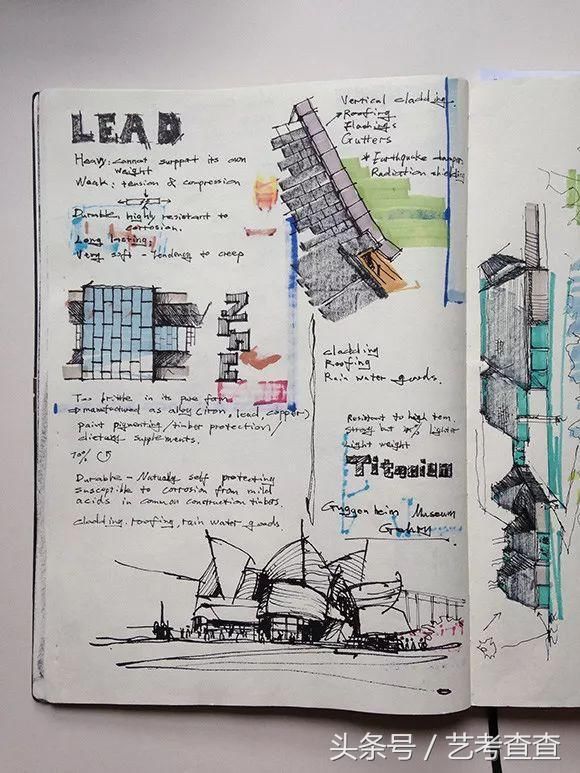 LEAD
Heavy: cannot support its own
weight
Weak: tension & compression
Durable, highly resistant to
corrosion.
Long lasting.
Very soft - tendency to creep
Vertical cladding
Roofing
Flashings
Gutters
* Earthquake damper
Radiation shielding
Too brittle in its pure form
manufatured as alloy (iron, lead, copper)
paint pigmenting / timber protection /
dietary supplements.
70%
Durable - Natually self protecting
susceptible to corrosion from mild
acids in common construction timbers.
cladding, roofing, rain water goods
cladding
Roofing
Rain water goods.
Resistant to high tem.
strong but lighter
Light weight
Titanium
Guggenheim Museum
Gehry
头条号 / 艺考查查